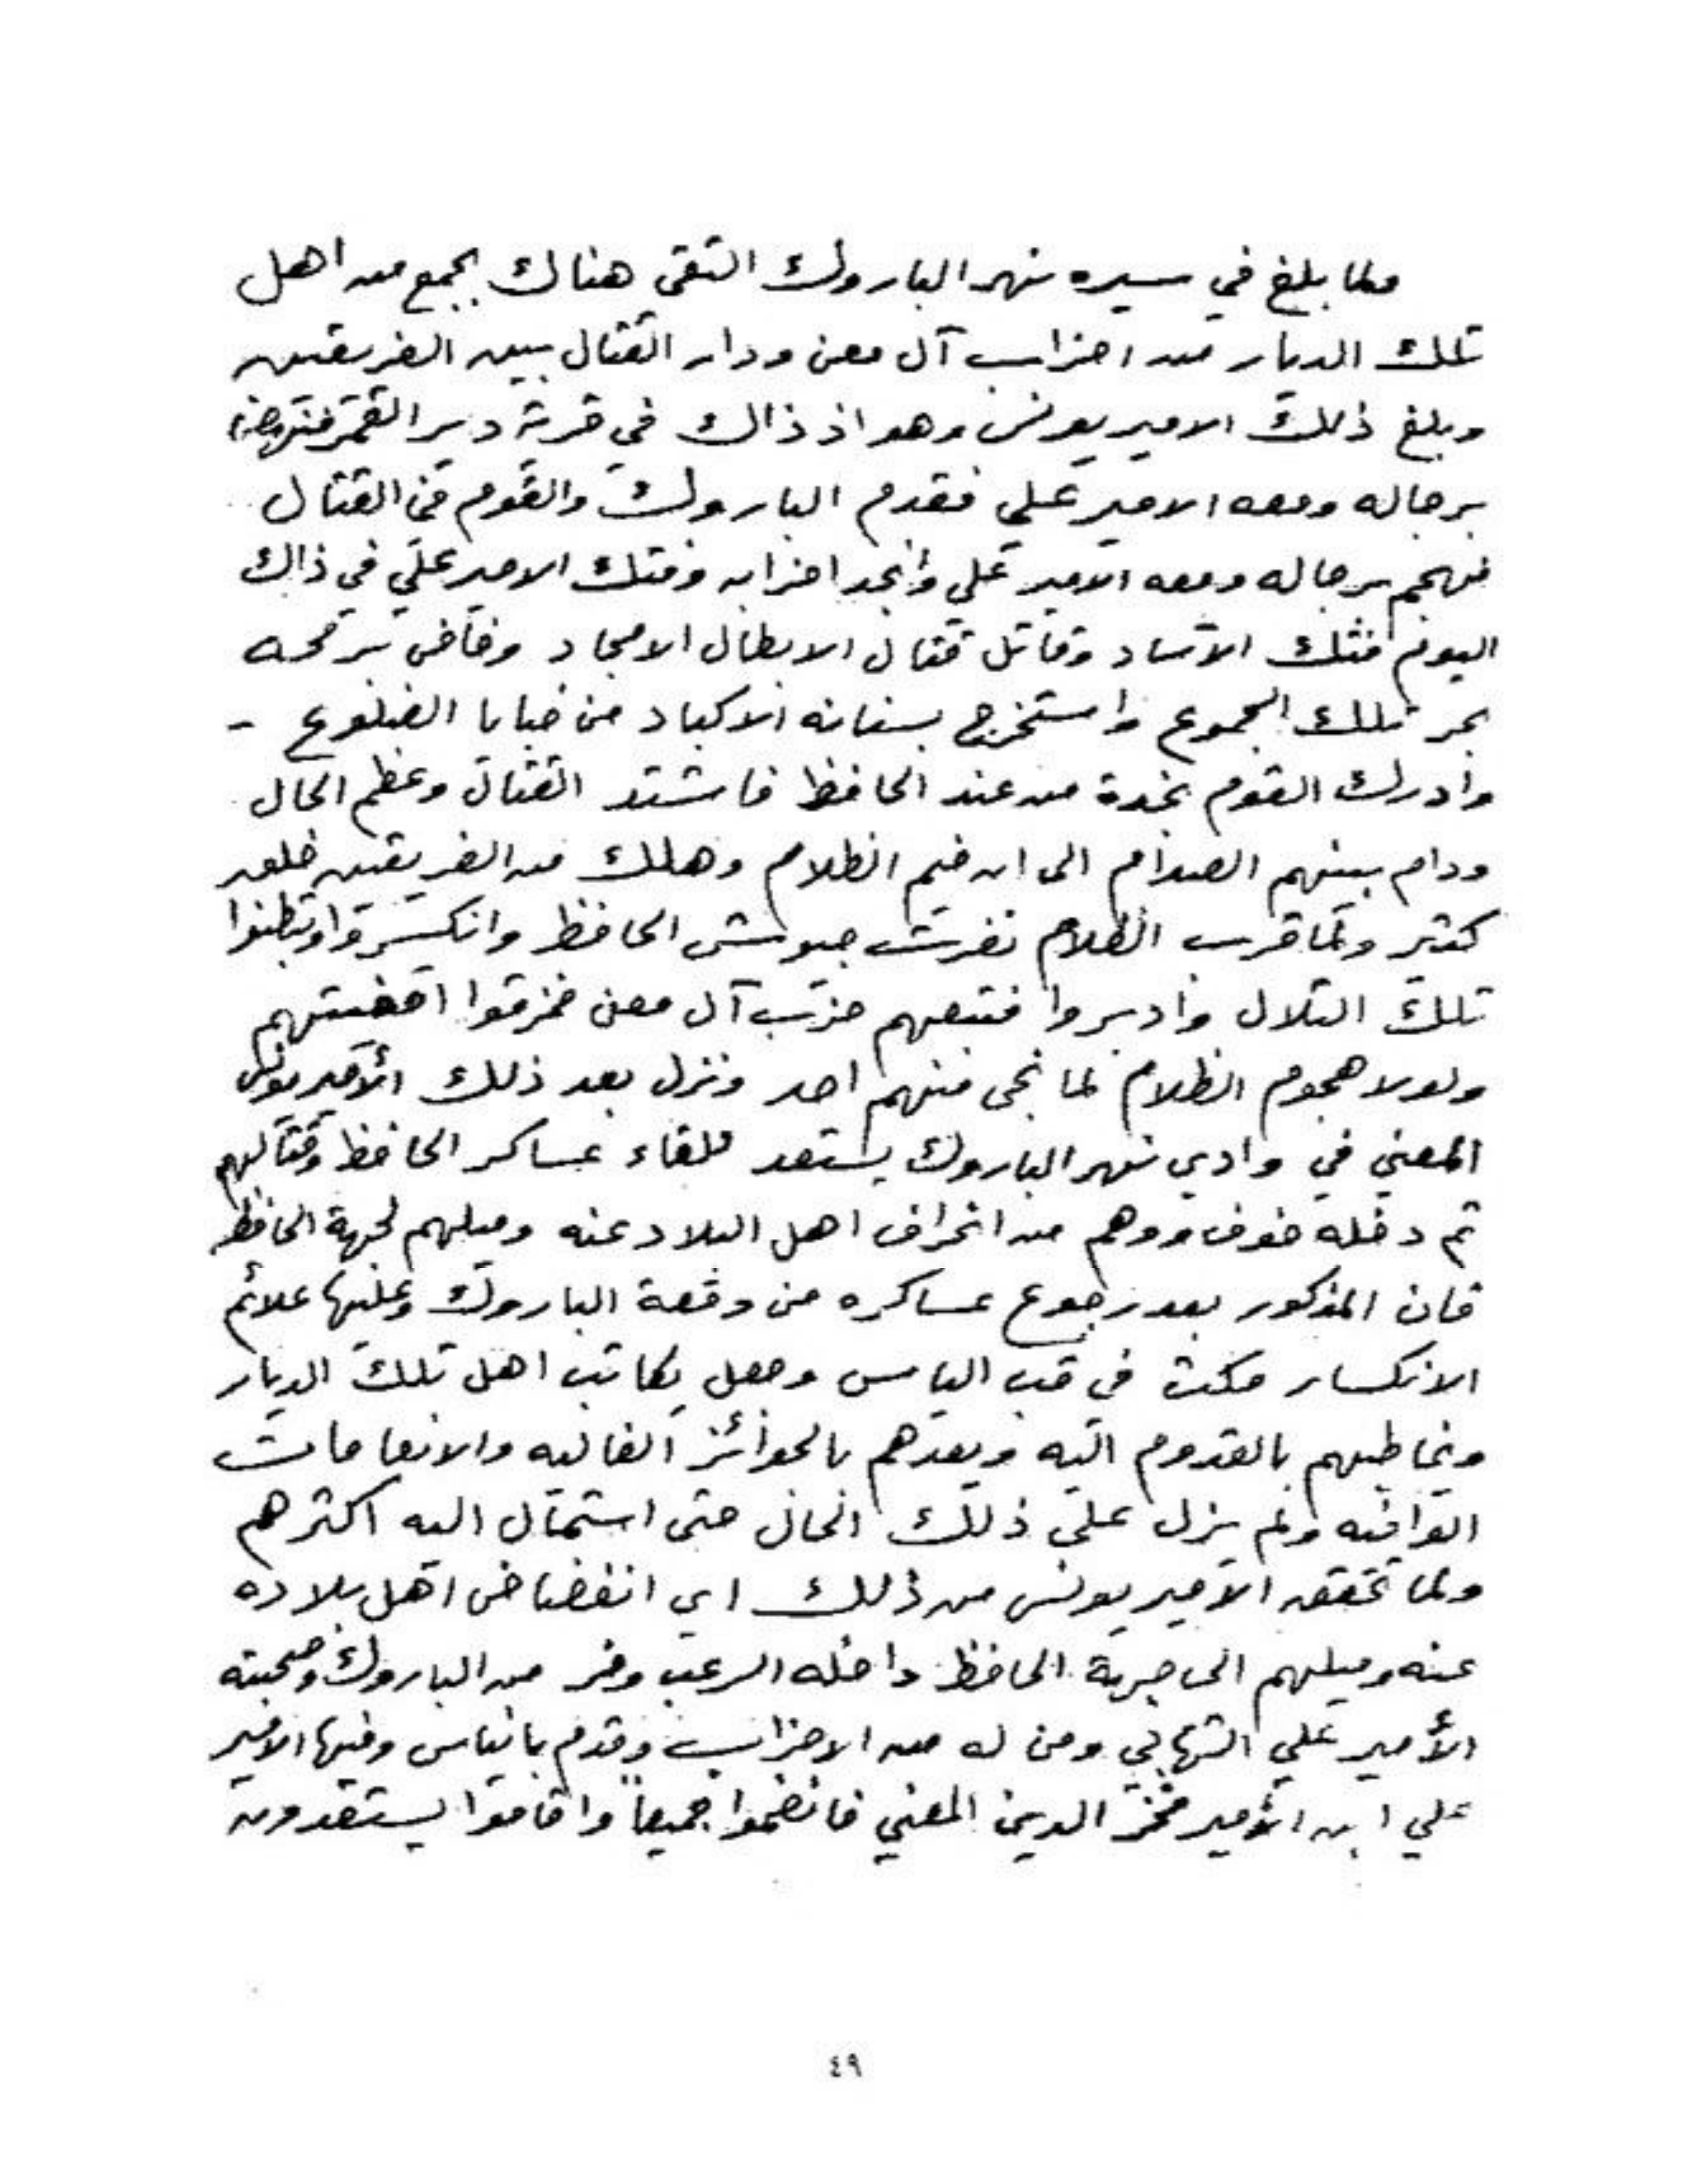 ولما بلغ في سيره نهر الباروك التقى هناك بجمع من اهل
تلك الديار من احزاب آل معن ودار القتال بين الفريقين
وبلغ ذلك الامير يونس وهو اذ ذاك في قرية دير القمر فنهض
برجاله ومعه الامير علي فقدم الباروك والقوم في القتال
فهجم برجاله ومعه الامير علي وانجد احزابه وفتك الامير علي في ذاك
اليوم فتك الآساد وقاتل قتال الابطال الامجاد وخاض برمحه
بحر تلك الجموع واستخرج بسنانه الاكباد من خبايا الضلوع -
وادرك القوم نجدة من عند الحافظ فاشتد القتال وعظم الحال
ودام بينهم الصدام الى ان خيم الظلام وهلك من الفريقين خلق
كثير ولما قرب الظلام نفرت جيوش الحافظ وانكسروا وتبطنوا
تلك التلال وادبروا فتبعهم حزب آل معن فمزقوا اقفيتهم
ولولا هجوم الظلام لما نجى منهم احد ونزل بعد ذلك الأمير يونس
المعني في وادي نهر الباروك يستعد للقاء عساكر الحافظ وقتالهم
ثم دخله خوف ووهم من انحراف اهل البلاد عنه وميلهم لجهة الحافظ
فان المذكور بعد رجوع عساكره من وقعة الباروك وعليها علائم
الانكسار مكث في قب الياس وجعل يكاتب اهل تلك الديار
ويخاطبهم بالقدوم اليه ويعدهم بالجوائز الغاليه والانعامات
الوافيه ولم يزل على ذلك الحال حتى استمال اليه اكثرهم
ولما تحقق الامير يونس من ذلك اي انفضاض اهل بلاده
عنه وميلهم الى جهة الحافظ داخله الرعب وفر من الباروك وصحبته
الأمير علي الشهابي ومن له من الاحزاب وقدم بانياس وفيها الامير
علي ابن الأمير فخر الدين المعني فانضموا جميعاً واقاموا يستعدون
٤٩